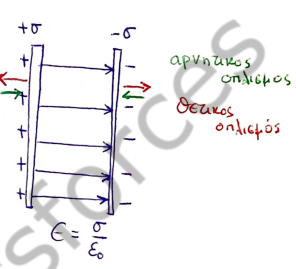 +σ -σ
αρνητικος
οπλισμος
θετικος
οπλισμός
+ -
+ -
+ -
+ -
+ -
+
ε = σ/ε₀
sforces